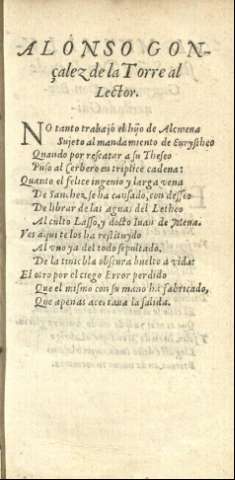 ALONSO GON-
çalez de la Torre al
Lector.
NO tanto trabajó el hijo de Alcmena
Sujeto al mandamiento de Eurystheo
Quando por rescatar a su Theseo
Puso al Cerbero en triplice cadena:
Quanto el felice ingenio y larga vena
De Sanchez, se ha cansado, con desseo
De librar de las aguas del Letheo
Al culto Lasso, y docto Iuan de Mena.
Ves aqui te los ha restituydo
Al vno ya del todo sepultado,
De la tiniebla obscura buelto a vida:
El otro por el ciego Error perdido
Que el mismo con su mano ha fabricado,
Que apenas acertaua la salida.